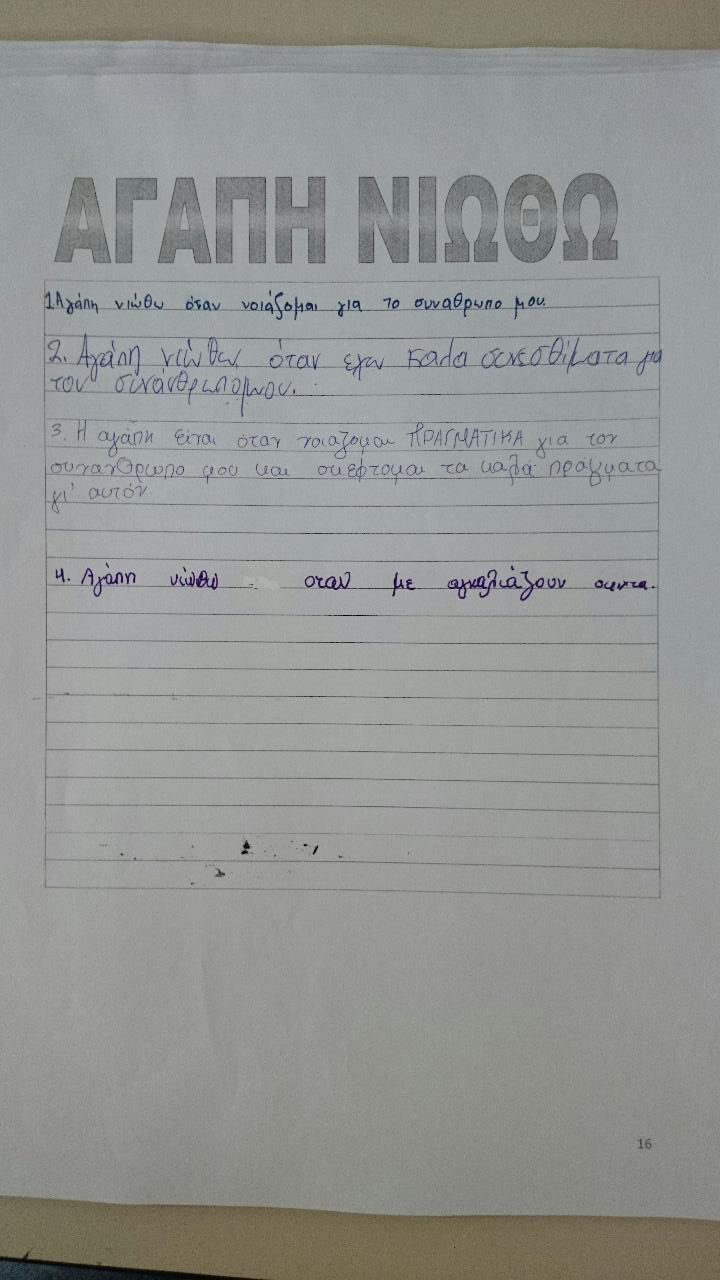 ΑΓΑΠΗ ΝΙΩΘΩ
1.Αγάπη νιώθω όταν νοιάζομαι για το συναθρωπο μου.
2. Αγάπη νιώθω όταν εχω καλα συνεσθίματα για
τον συνάνθρωπομου.
3. Η αγάπη είναι όταν νοιαζομαι ΠΡΑΓΜΑΤΙΚΑ για τον
συνανθρωπο μου και σκέφτομαι τα καλά πράγματα
γι' αυτόν
4. Αγάπη νιώθω οταν με αγκαλιάζουν
16